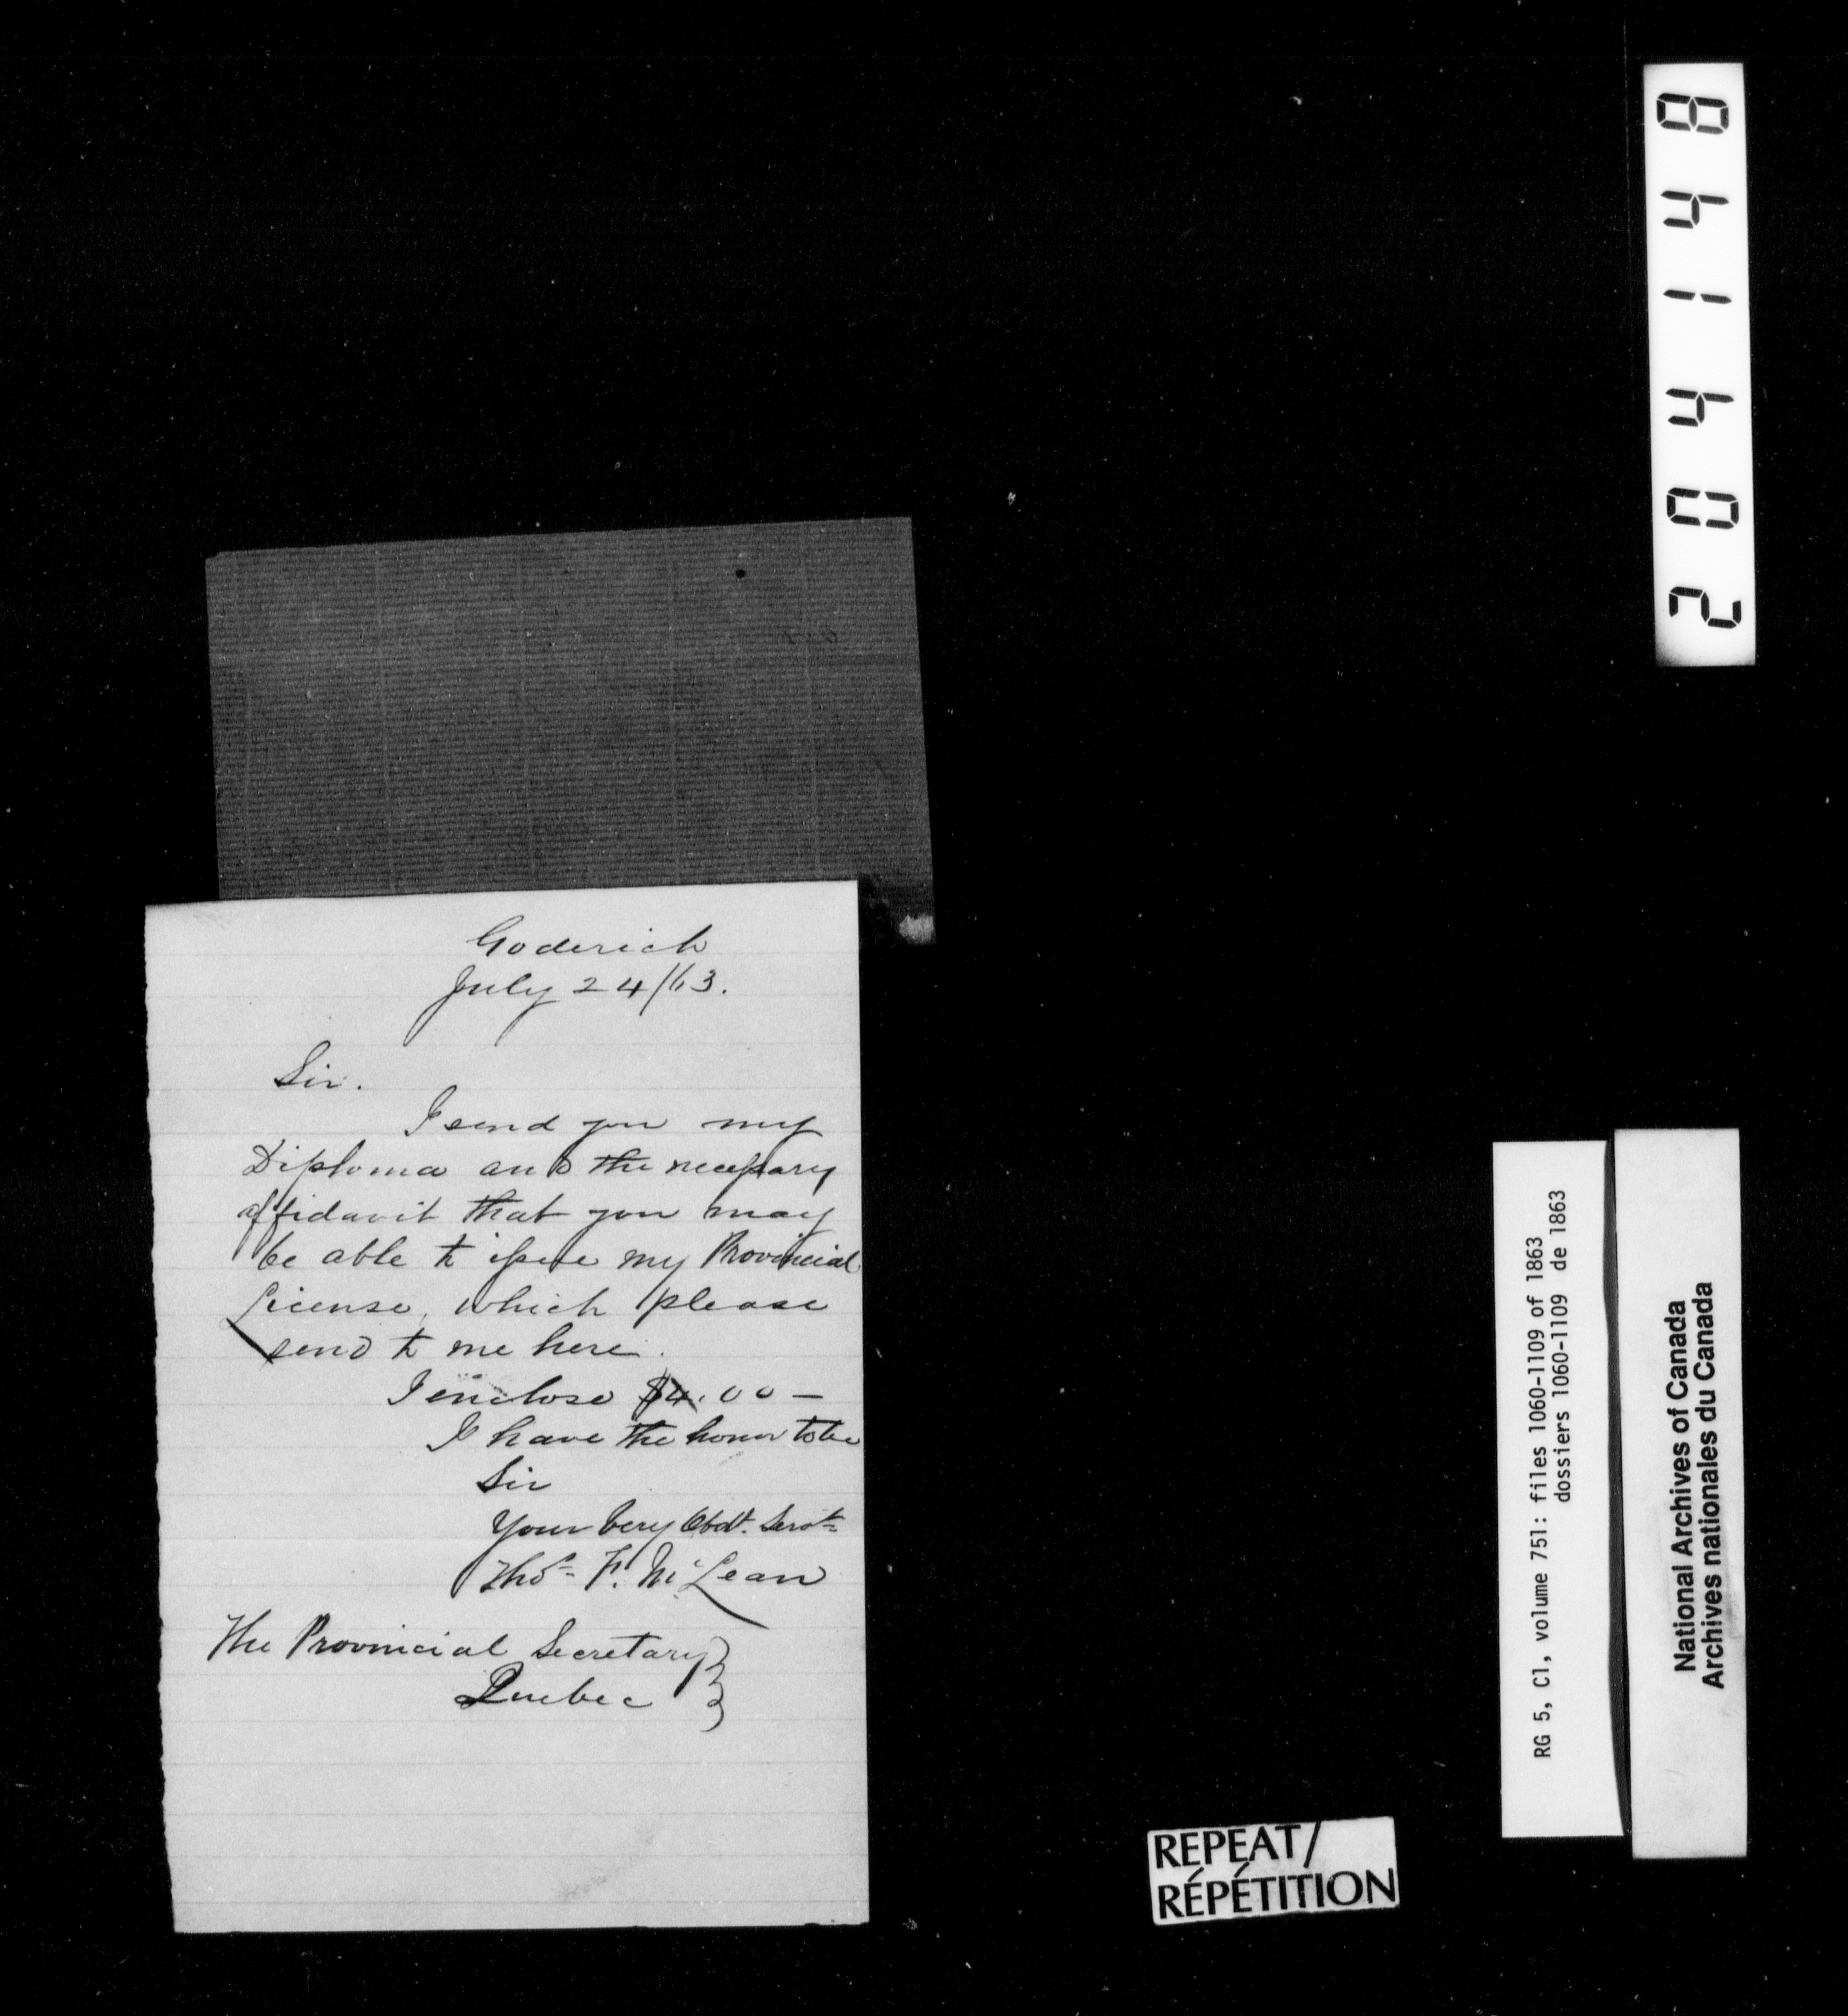 Goderich
July 24/63.
Sir.
I send you my
Diploma and the necessary
affidavit that you may
be able to issue my Provincial
License, which please
send to me here.
I enclose $4.00 —
I have the honor to be
Sir
Your very Obdt. Servt.
Thos. F. McLean
The Provincial Secretary
Quebec
REPEAT/
RÉPÉTITION
RG 5, C1, volume 751: files 1060-1109 of 1863
dossiers 1060-1109 de 1863
National Archives of Canada
Archives nationales du Canada
204148